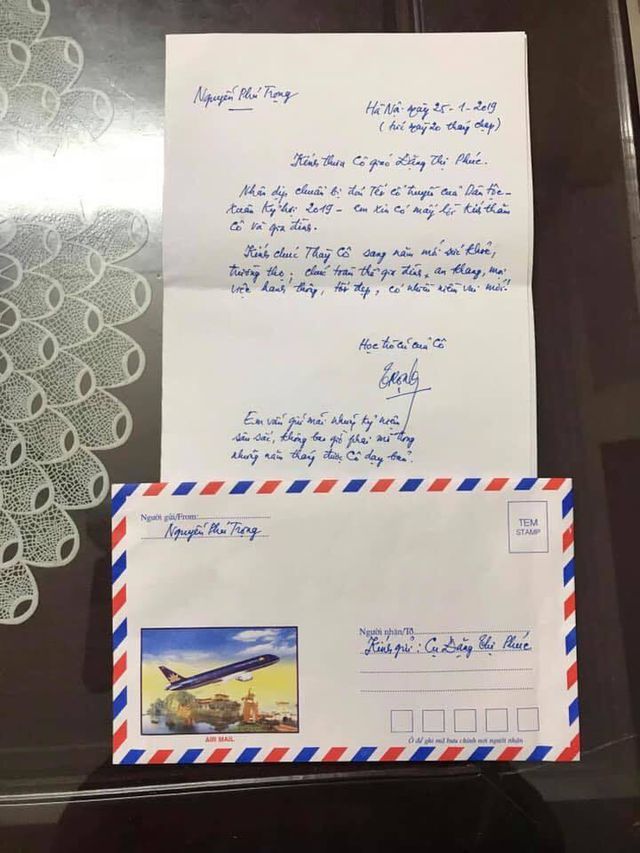 Nguyễn Phú Trọng
Hà Nội ngày 25-1-2019
(tức ngày 20 tháng chạp)
Kính thưa Cô giáo Đặng Thị Phúc.
Nhân dịp chuẩn bị đón Tết cổ truyền của Dân tộc -
Xuân Kỷ hợi 2019 - em xin có mấy lời kính thăm
Cô và gia đình.
Kính chúc Thầy Cô sang năm mới sức khoẻ,
trường thọ; chúc toàn thể gia đình an khang, mọi
việc hanh thông, tốt đẹp, có nhiều niềm vui mới!
Học trò cũ của Cô
Trọng
Em vẫn giữ mãi những kỷ niệm
sâu sắc, không bao giờ phai mờ trong
những năm tháng được Cô dạy bảo.
Người gửi/From:
Nguyễn Phú Trọng
TEM
STAMP
Người nhận/To:
Kính gửi: Cụ Đặng Thị Phúc
AIR MAIL
Ô để ghi mã bưu chính nơi người nhận